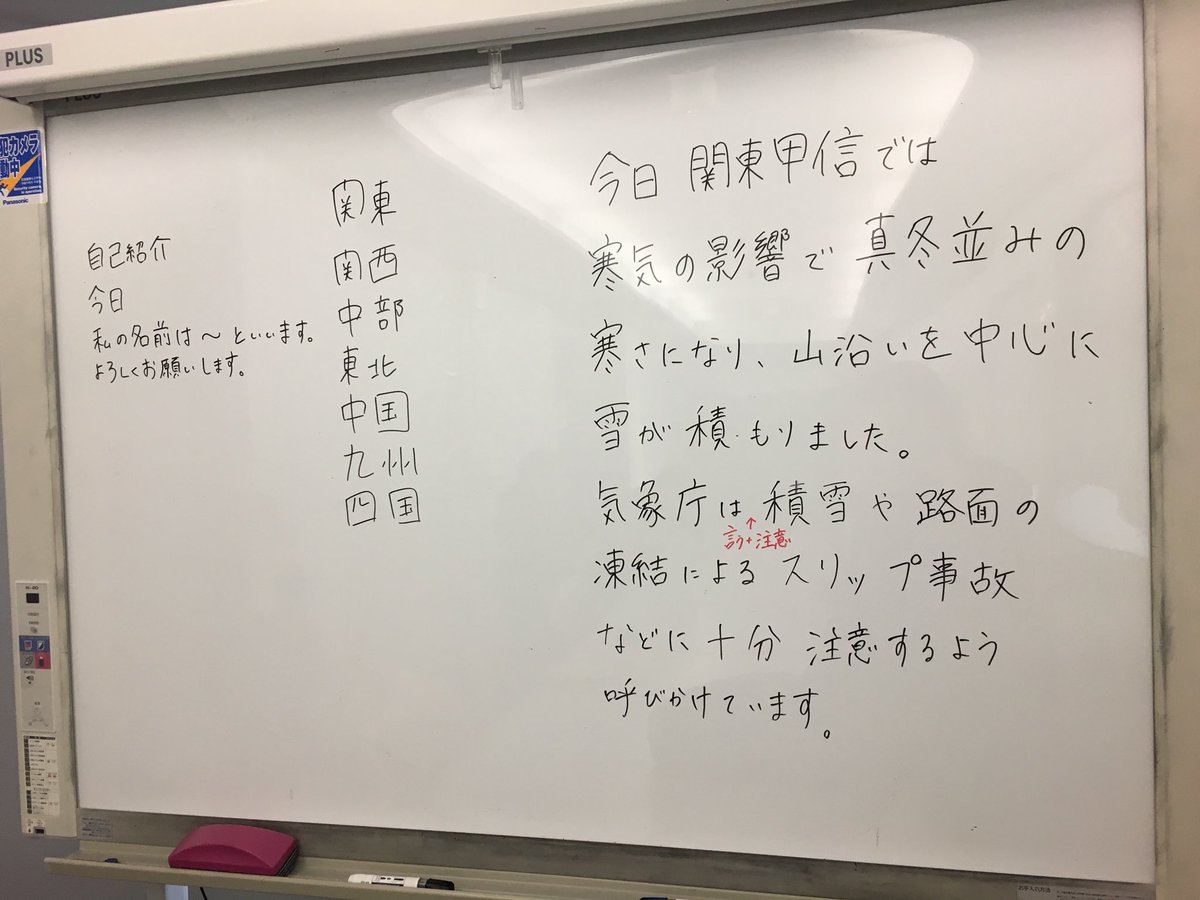 PLUS
カメラ
Security camera
in operation
Panasonic
自己紹介
今日
私の名前は〜といいます。
よろしくお願いします。
関東
関西
中部
東北
中国
九州
四国
今日 関東甲信では
寒気の影響で真冬並みの
寒さになり、山沿いを中心に
雪が積もりました。
気象庁は積雪や路面の
↑
言う+注意
凍結によるスリップ事故
などに十分注意するよう
呼びかけています。
お手入れ方法